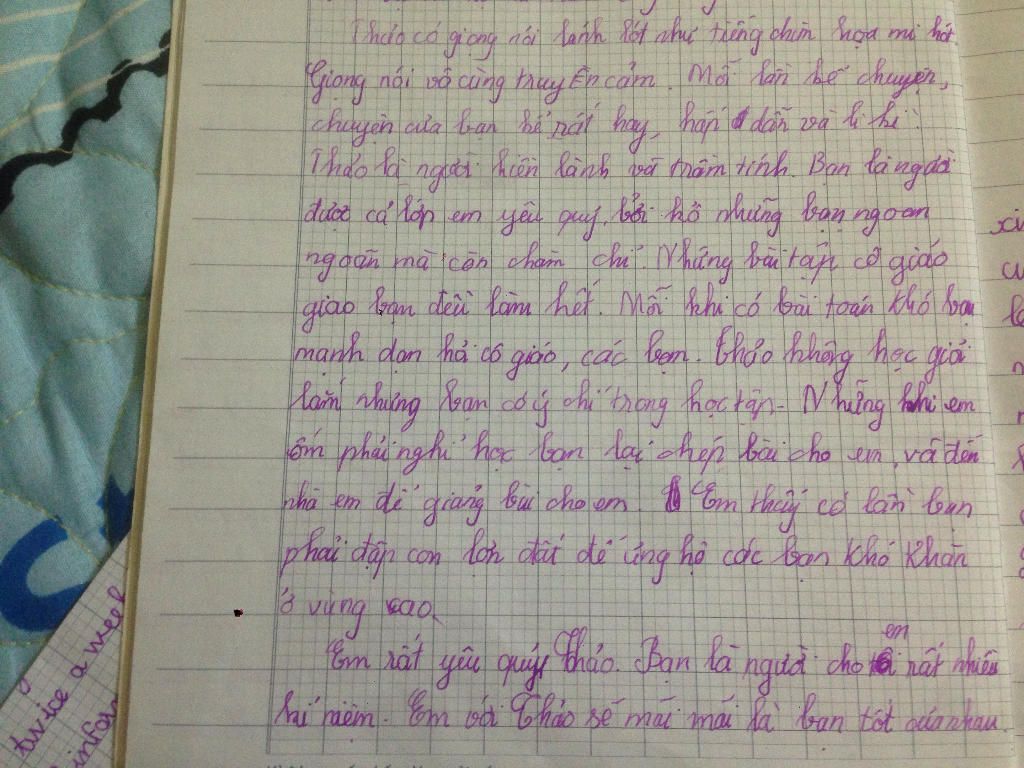 Thảo có giọng nói lảnh lót như tiếng chim họa mi hót.
Giọng nói vô cùng truyền cảm. Mỗi lần kể chuyện,
chuyện của bạn kể rất hay, hấp dẫn và li kì.
Thảo là người hiền lành và trầm tính. Bạn là người
được cả lớp em yêu quý bởi kô những bạn ngoan
ngoãn mà còn chăm chỉ. Những bài tập cô giáo
giao bạn đều làm hết. Mỗi khi có bài toán khó bạn
mạnh dạn hỏi cô giáo, các bạn. Thảo không học giỏi
lắm nhưng bạn có ý chí trong học tập. Những khi em
ốm phải nghỉ học bạn lại chép bài cho em, và đến
nhà em để giảng bài cho em. Em thấy có lần bạn
phải đập con lợn đất để ủng hộ các bạn khó khăn
ở vùng cao.
Em rất yêu quý Thảo. Bạn là người cho em rất nhiều
kỉ niệm. Em với Thảo sẽ mãi mãi là bạn tốt của nhau.
twice a week
infor